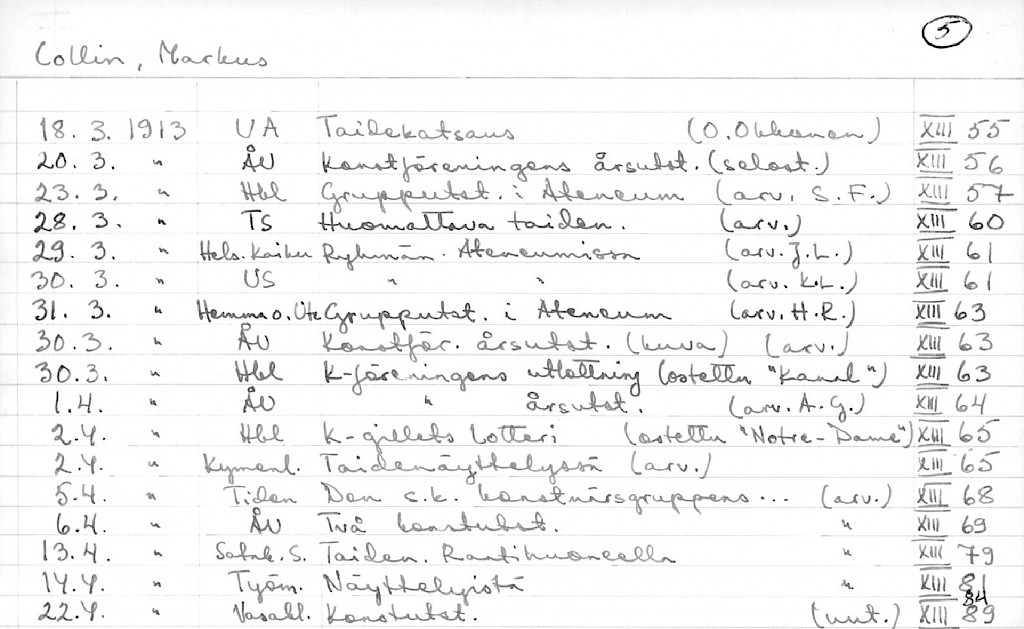 5
Collin, Markus
18. 3. 1913 UA Taidekatsaus (O. Okkonen) XIII 55
20. 3. " ÅU Konstföreningens årsutst. (selost.) XIII 56
23. 3. " Hbl Grupputst. i Ateneum (arv. S. F.) XIII 57
28. 3. " TS Huomattava taiden. (arv.) XIII 60
29. 3. " Hels. Kaiku Ryhmän. Ateneumissa (arv. J. L.) XIII 61
30. 3. " US " " (arv. K. L.) XIII 61
31. 3. " Hemma o. Ute Grupputst. i Ateneum (arv. H. R.) XIII 63
30. 3. " ÅU Konstför. årsutst. (kuva) (arv.) XIII 63
30. 3. " Hbl K-föreningens utlottning (ostettu "Kanal") XIII 63
1. 4. " ÅU " årsutst. (arv. A. G.) XIII 64
2. 4. " Hbl K-gillets lotteri (ostettu "Notre-Dame") XIII 65
2. 4. " Kymenl. Taidenäyttelyssä (arv.) XIII 65
5. 4. " Tiden Den s.k. konstnärsgruppens ... (arv.) XIII 68
6. 4. " ÅU Två konstutst. " XIII 69
13. 4. " Satak. S. Taiden. Raatihuoneella " XIII 79
14. 4. " Työm. Näyttelyistä " XIII 81
84
22. 4. " Vasabl. Konstutst. (uut.) XIII 89